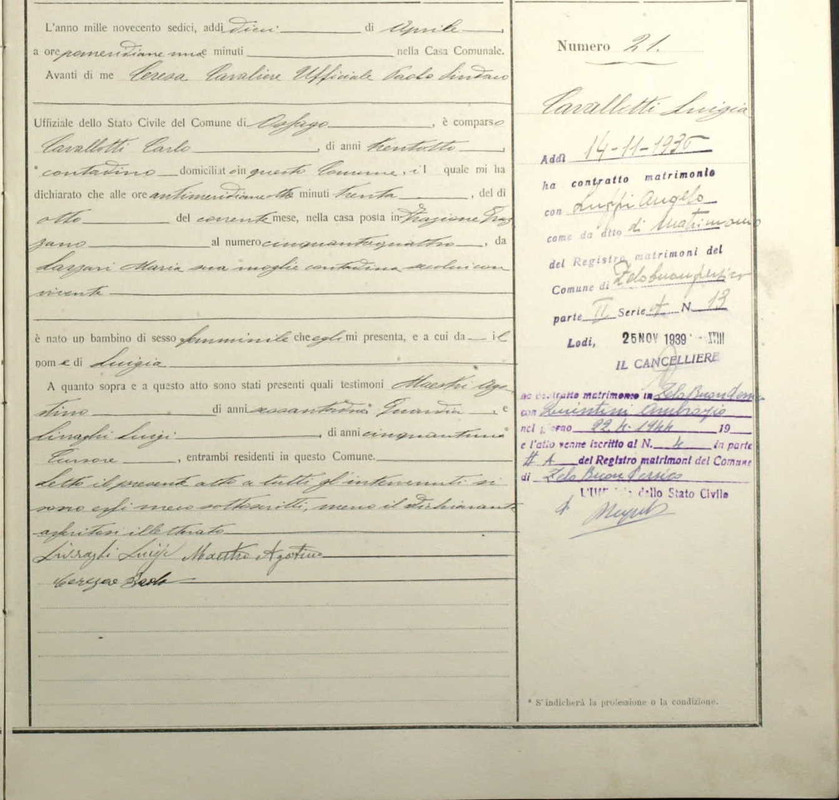 L'anno mille novecento sedici, addi dieci di Aprile,
a ore pomeridiane una minuti nella Casa Comunale.
Avanti di me Ceresa Cavaliere Ufficiale Paolo Sindaco
Uffiziale dello Stato Civile del Comune di Ossago, è comparso
Cavalletti Carlo, di anni trentotto
* contadino domiciliato in questo Comune, il quale mi ha
dichiarato che alle ore antimeridiane otto minuti trenta, del di
otto del corrente mese, nella casa posta in frazione
al numero cinquantaquattro, da
Lazzari Maria sua moglie contadina seco lui con
vivente
è nato un bambino di sesso femminile che egli mi presenta, e a cui da il
nome di Luigia
A quanto sopra e a questo atto sono stati presenti quali testimoni Maestri Ago
stino di anni Guardia, e
Luigi, di anni cinquantuno
Cursore, entrambi residenti in questo Comune.
Letto il presente atto a tutti gl'intervenuti si
sono essi meco sottoscritti, meno il dichiarante
illetterato
Luigi Maestri Agostino
Ceresa Paolo
Numero 21.
Cavalletti Luigia
Addì 14-11-193
ha contratto matrimonio
con Luppi Angelo
come da atto di Matrimonio
del Registro matrimoni del
Comune di Zelobuonpersico
parte II Serie A N. 13
Lodi, 25 NOV 1939 - XVIII
IL CANCELLIERE
ha contratto matrimonio in Zelo Buon Persico
con Quintini Ambrogio
nel giorno 22.4.1944 19
e l'atto venne iscritto al N. 4 in parte
II A del Registro matrimoni del Comune
di Zelo Buon Persico
L'Uff. dello Stato Civile
* S'indicherà la professione o la condizione.